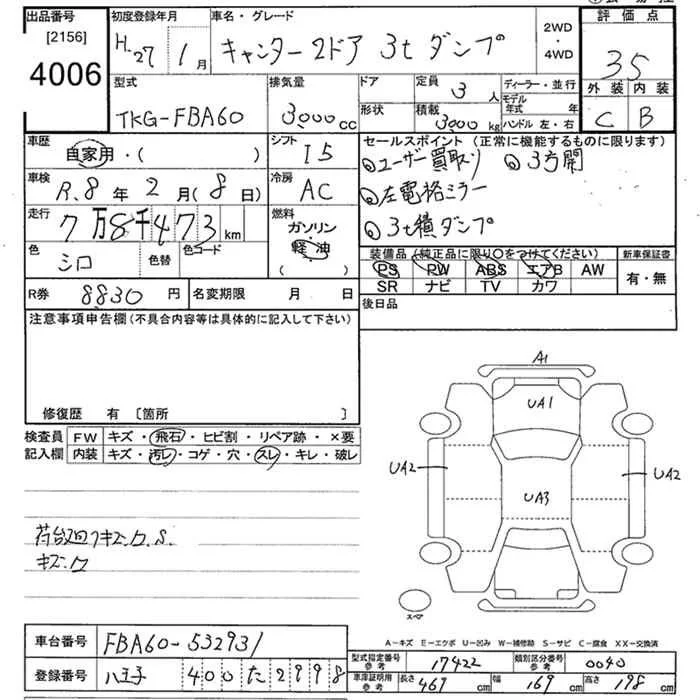 出品番号 初度登録年月 車名・グレード 2WD ・ 4WD 評価点
[2156]
4006 H.27年 1月 キャンター2ドア 3tダンプ 35
外装 内装
C B
型式 排気量 ドア 定員 3人 ディーラー・並行
TKG-FBA60 3,000cc 形状 積載 3,000kg モデル年式 年
ハンドル 左・右
車歴 自家用・( ) シフト I5 セールスポイント (正常に機能するものに限ります)
ユーザー買取り 3方開
車検 R.8年 2月(8日) 冷房 AC
左電格ミラー
走行 7万8千473km 燃料 ガソリン 軽油 ( )
3t積ダンプ
色 シロ 色替 色コード
装備品 (純正品に限り〇をつけてください) 新車保証書
PS PW ABS エアB AW 有・無
SR ナビ TV カワ
R券 8830円 名変期限 月 日
後日品
注意事項申告欄(不具合内容等は具体的に記入して下さい)
修復歴 有 〔箇所 〕
検査員記入欄 FW キズ・飛石・ヒビ割・リペア跡・×要
内装 キズ・汚レ・コゲ・穴・スレ・キレ・破レ
A1
UA1
UA2 UA2
UA3
荷台廻りキズ.ク.S.
キズ.ク
スペア
A-キズ E-エクボ U-凹み W-補修跡 S-サビ C-腐食 XX-交換済
車台番号 FBA60-532931
登録番号 八王子 400 た 2998
型式指定番号参考 17422 類別区分番号参考 0040
車庫証明用参考 長さ 469cm 幅 169cm 高さ 198cm